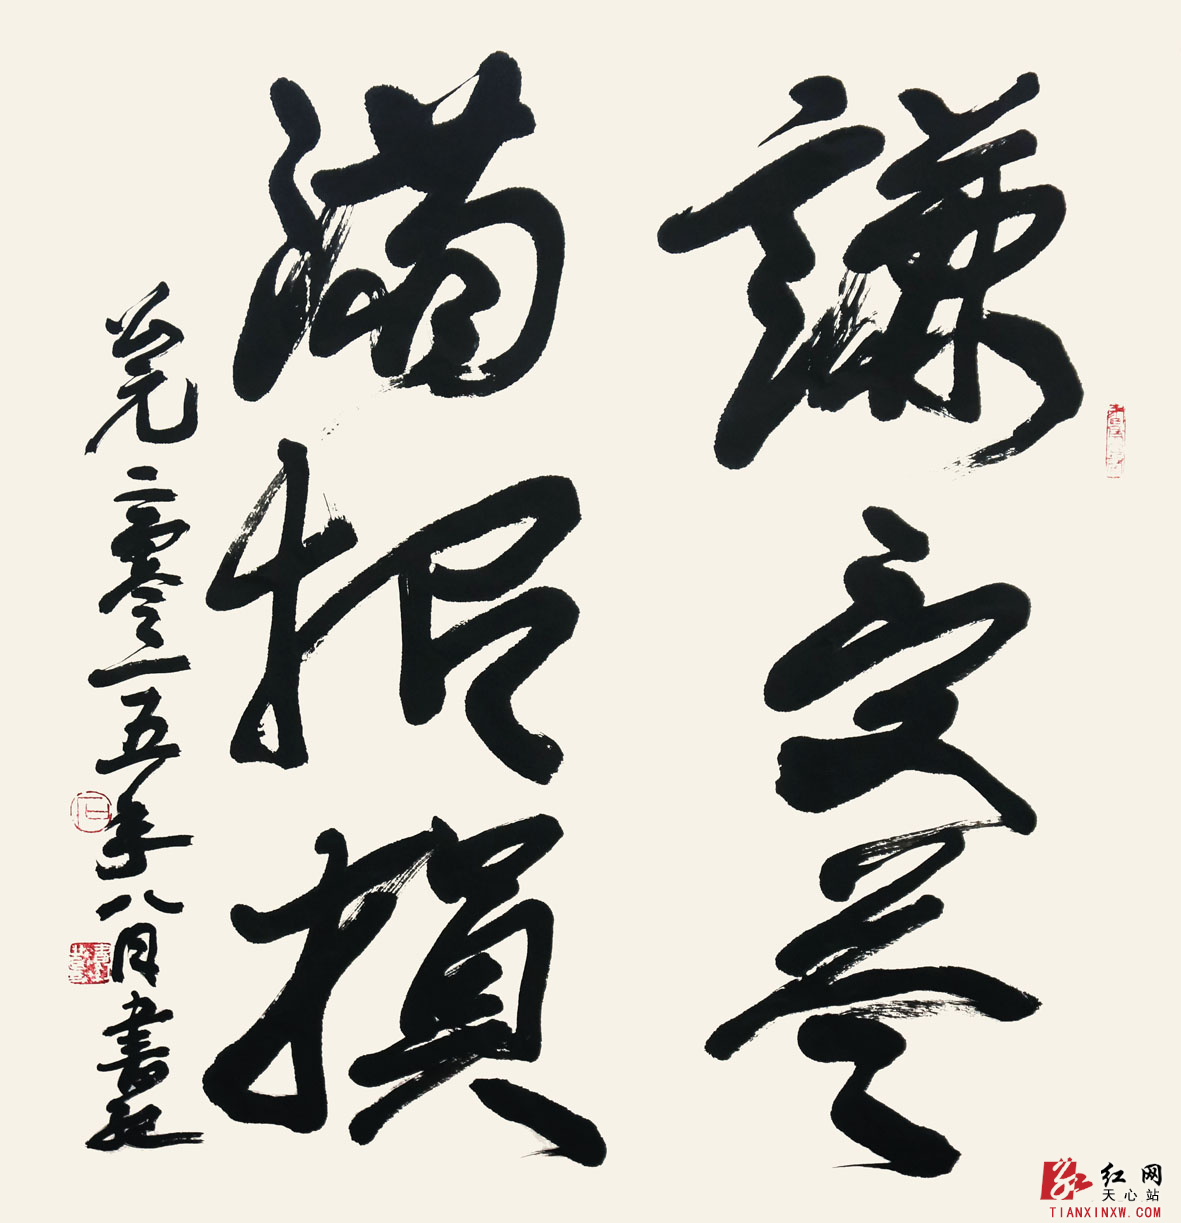 謙受益
满招損
公元二零一五年八月書
红网
天心站
TIANXINXW.COM